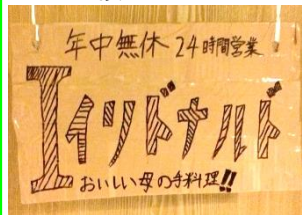 年中無休 24時間営業
Iイソドナルド
おいしい母の手料理!!